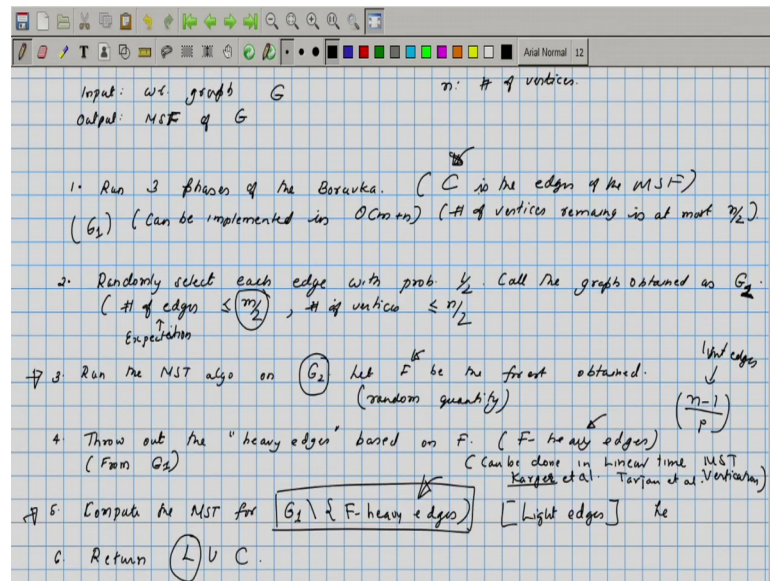 Arial Normal 12
Input: wt. graph G n: # of vertices.
Output: MSF of G
1. Run 3 phases of the Boruvka. ( C is the edges of the MSF)
(G1) (Can be implemented in O(m+n)) (# of vertices remaing is at most n/2).
2. Randomly select each edge with prob. 1/2. Call the graph obtained as G2.
( # of edges ≤ m/2 , # of vertices ≤ n/2
Expectation
light edges
3. Run the MST algo on G2. Let F be the forest obtained.
(random quantity) (n-1/p)
4. Throw out the "heavy edges" based on F. ( F- heavy edges)
(From G1) (Can be done in Linear time MST
Karger et al. Tarjan et al. Verification)
5. Compute the MST for G1 \ { F-heavy edges) [Light edges] he
6. Return L U C.